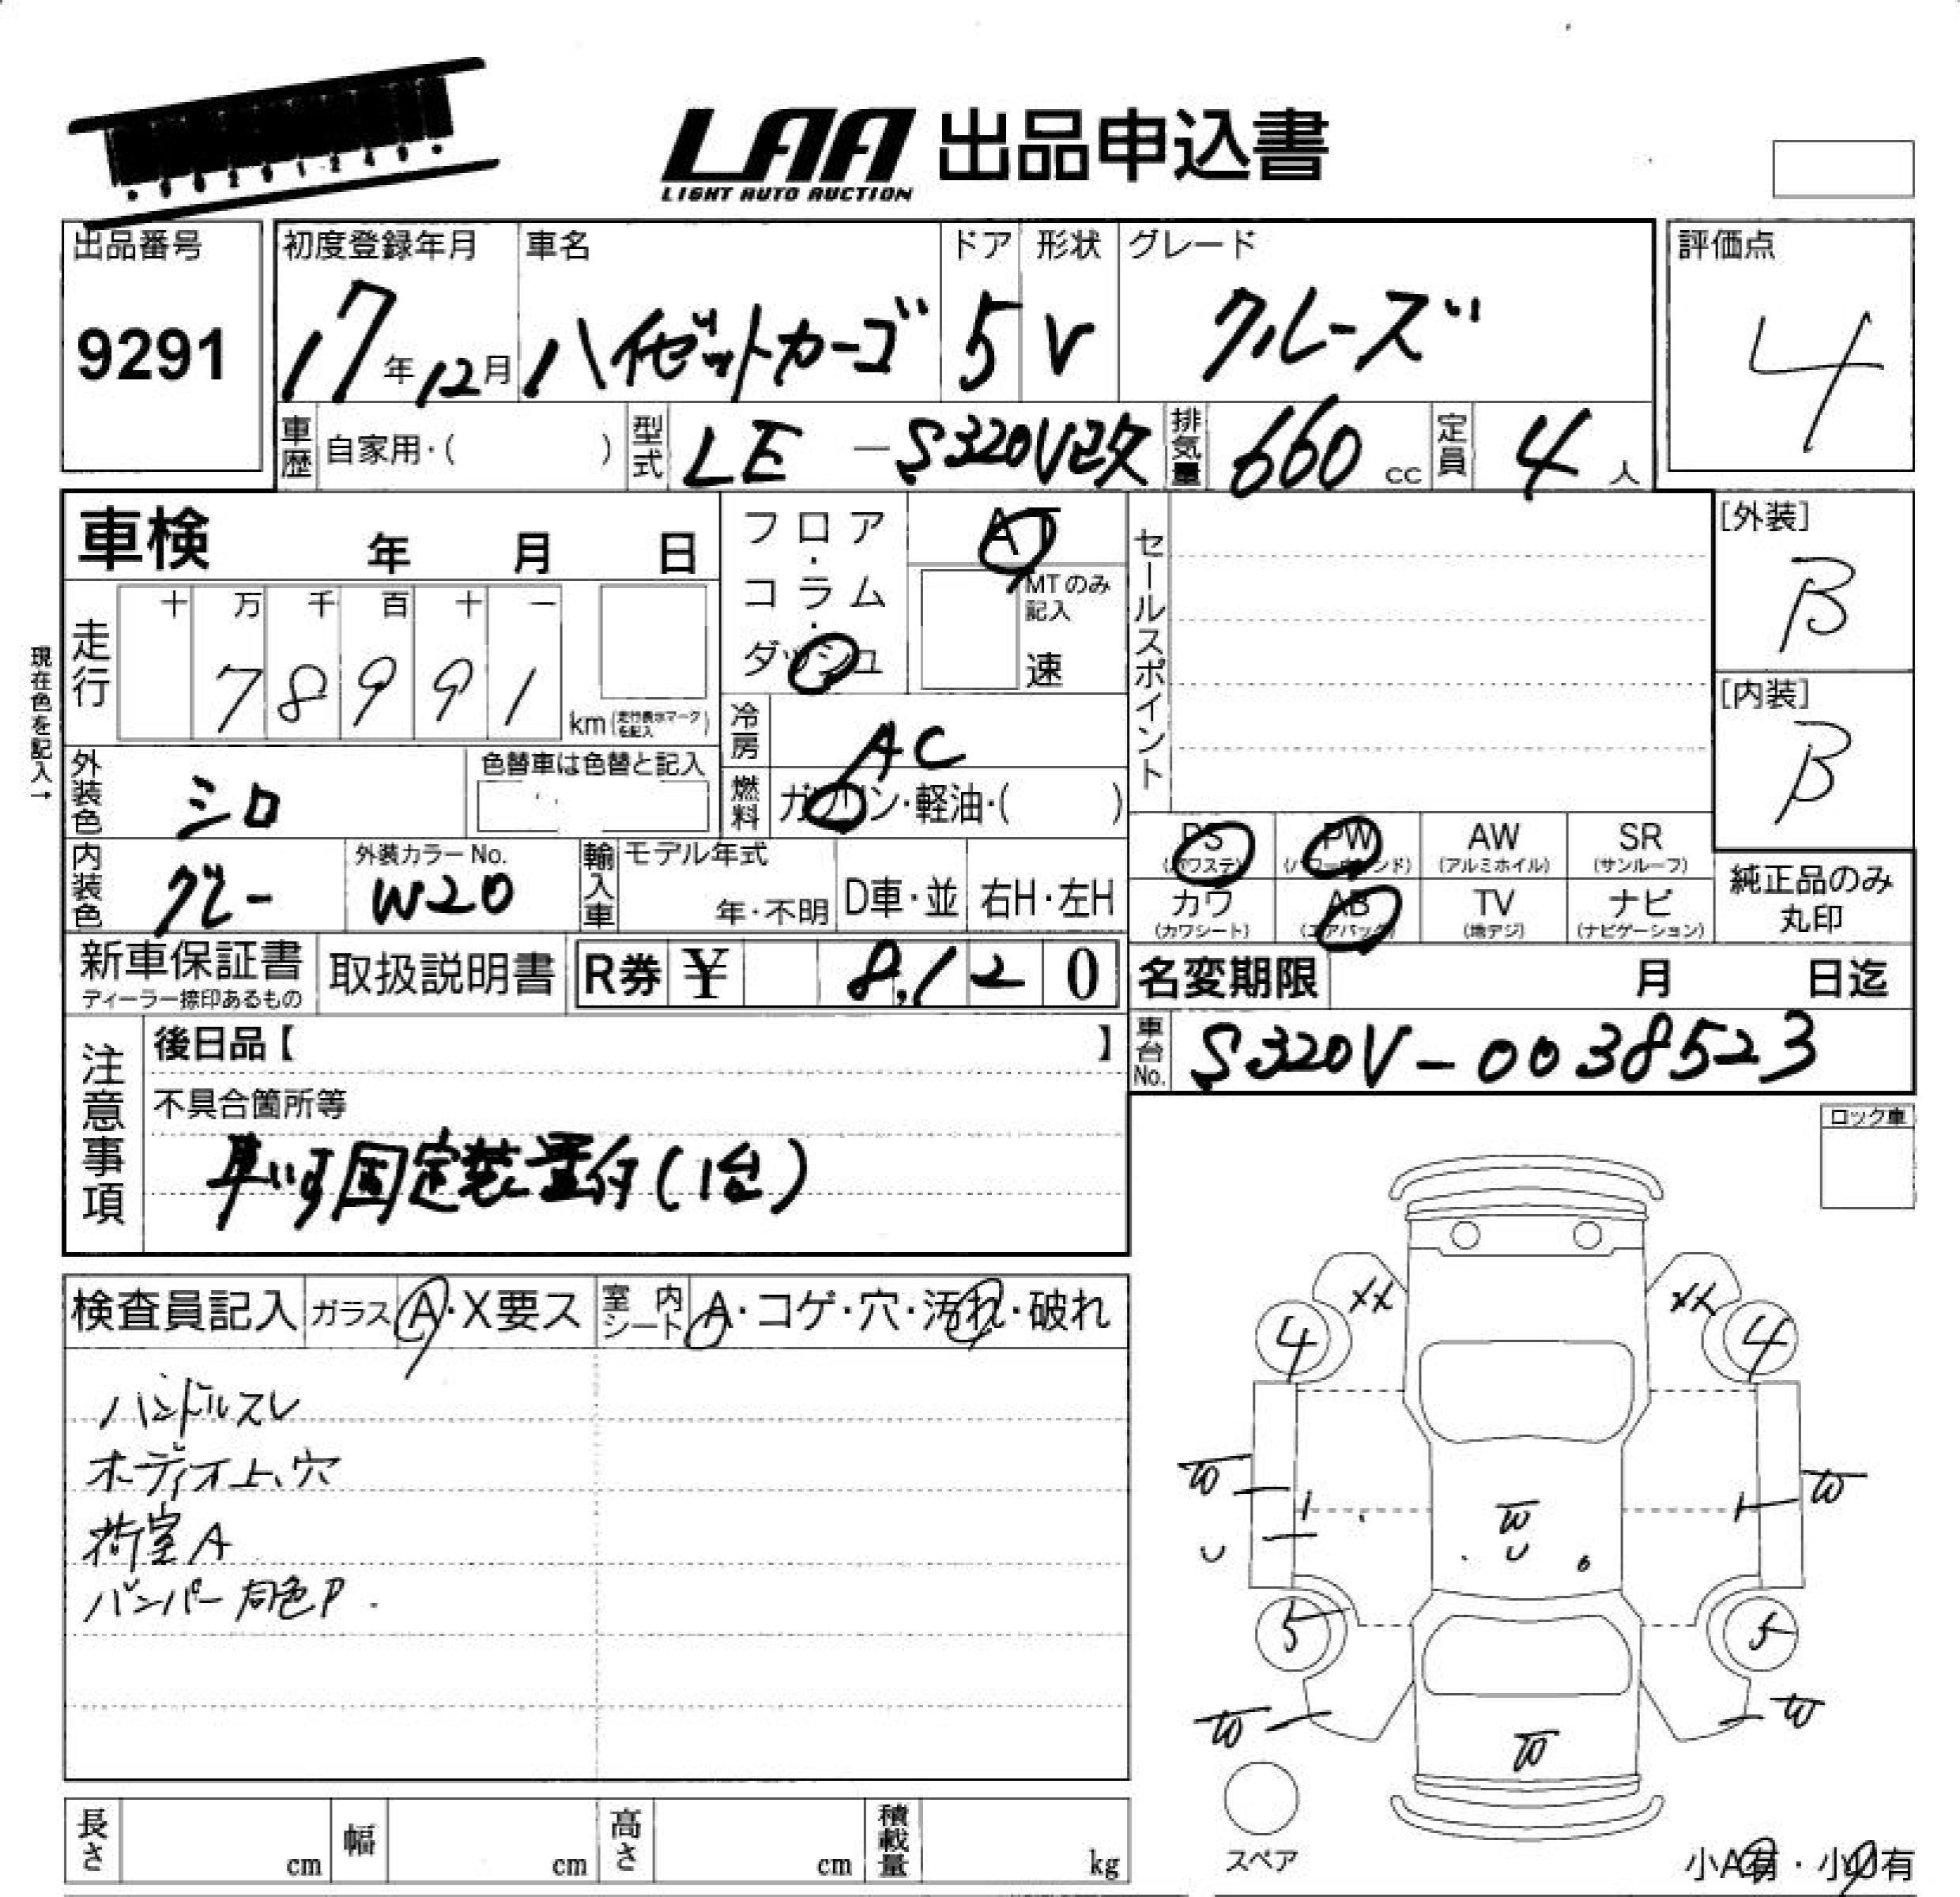 LAA 出品申込書
LIGHT AUTO AUCTION
出品番号
9291
初度登録年月
17年12月
車名
ハイゼットカーゴ
ドア
5
形状
V
グレード
クルーズ
評価点
4
車歴 自家用・( )
型式 LE-S320V改
排気量 660 cc
定員 4 人
車検 年 月 日
フロア・コラム・ダッシュ
AT
MTのみ記入
速
セールスポイント
[外装]
B
[内装]
B
現在色を記入→
走行 十 万 千 百 十 一
7 8 9 9 1
km (走行表示マークを記入)
冷房 AC
外装色 シロ
色替車は色替と記入
燃料 ガソリン・軽油・( )
内装色 グレー
外装カラーNo.
W20
輸入車
モデル年式
年・不明
D車・並
右H・左H
PS (パワステ)
PW (パワーウィンド)
AW (アルミホイル)
SR (サンルーフ)
カワ (カワシート)
AB (エアバック)
TV (地デジ)
ナビ (ナビゲーション)
純正品のみ丸印
新車保証書
ディーラー捺印あるもの
取扱説明書
R券 ¥ 8,120
名変期限 月 日迄
車台No. S320V-0038523
注意事項
後日品【 】
不具合箇所等
車いす固定装置付(1台)
ロック車
検査員記入
ガラス A・X要ス
室内シート A・コゲ・穴・汚れ・破れ
ハンドルスレ
オーディオ上、穴
荷室A
バンパー同色P.
XX
XX
4
4
W
W
W
U
U
5
5
W
W
W
スペア
長さ cm
幅 cm
高さ cm
積載量 kg
小A有・小U有